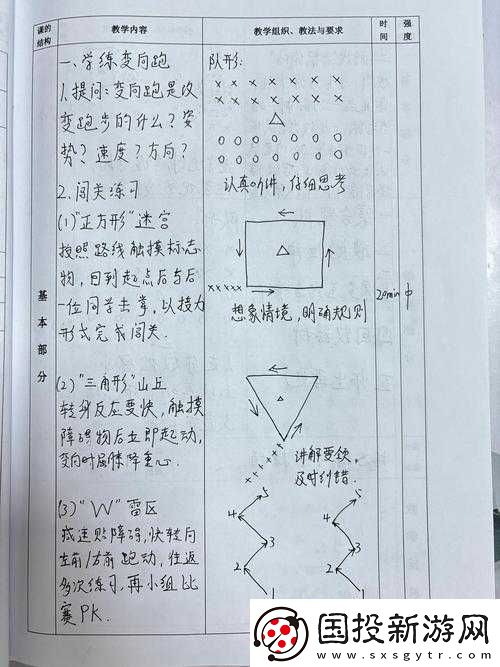 课的结构
教学内容
教学组织、教法与要求
时间
强度
一、学练变向跑
1.提问：变向跑是改
变跑步的什么？姿
势？速度？方向？
2.闯关练习
(1)"正方形"迷宫
按照路线触摸标志
物，回到起点后与后
一位同学击掌，以接力
形式完成闯关.
(2)"三角形"山丘
转身反应要快，触摸
障碍物后立即起动，
变向时屈膝降重心.
(3)"W"雷区
减速贴障碍，快转向
左前/右前跑动，往返
多次练习，再小组比
赛PK.
基本部分
队形：
× × × × × × ×
× × × × × × ×
○ ○ ○ ○ ○ ○ ○
○ ○ ○ ○ ○ ○ ○
认真听讲，仔细思考
×××××
想象情境，明确规则
××××××
讲解要领，
及时纠错.
5
4
3
2
1
5
4
3
2
1
20min
中
国投新游网
www.sxsgytr.com